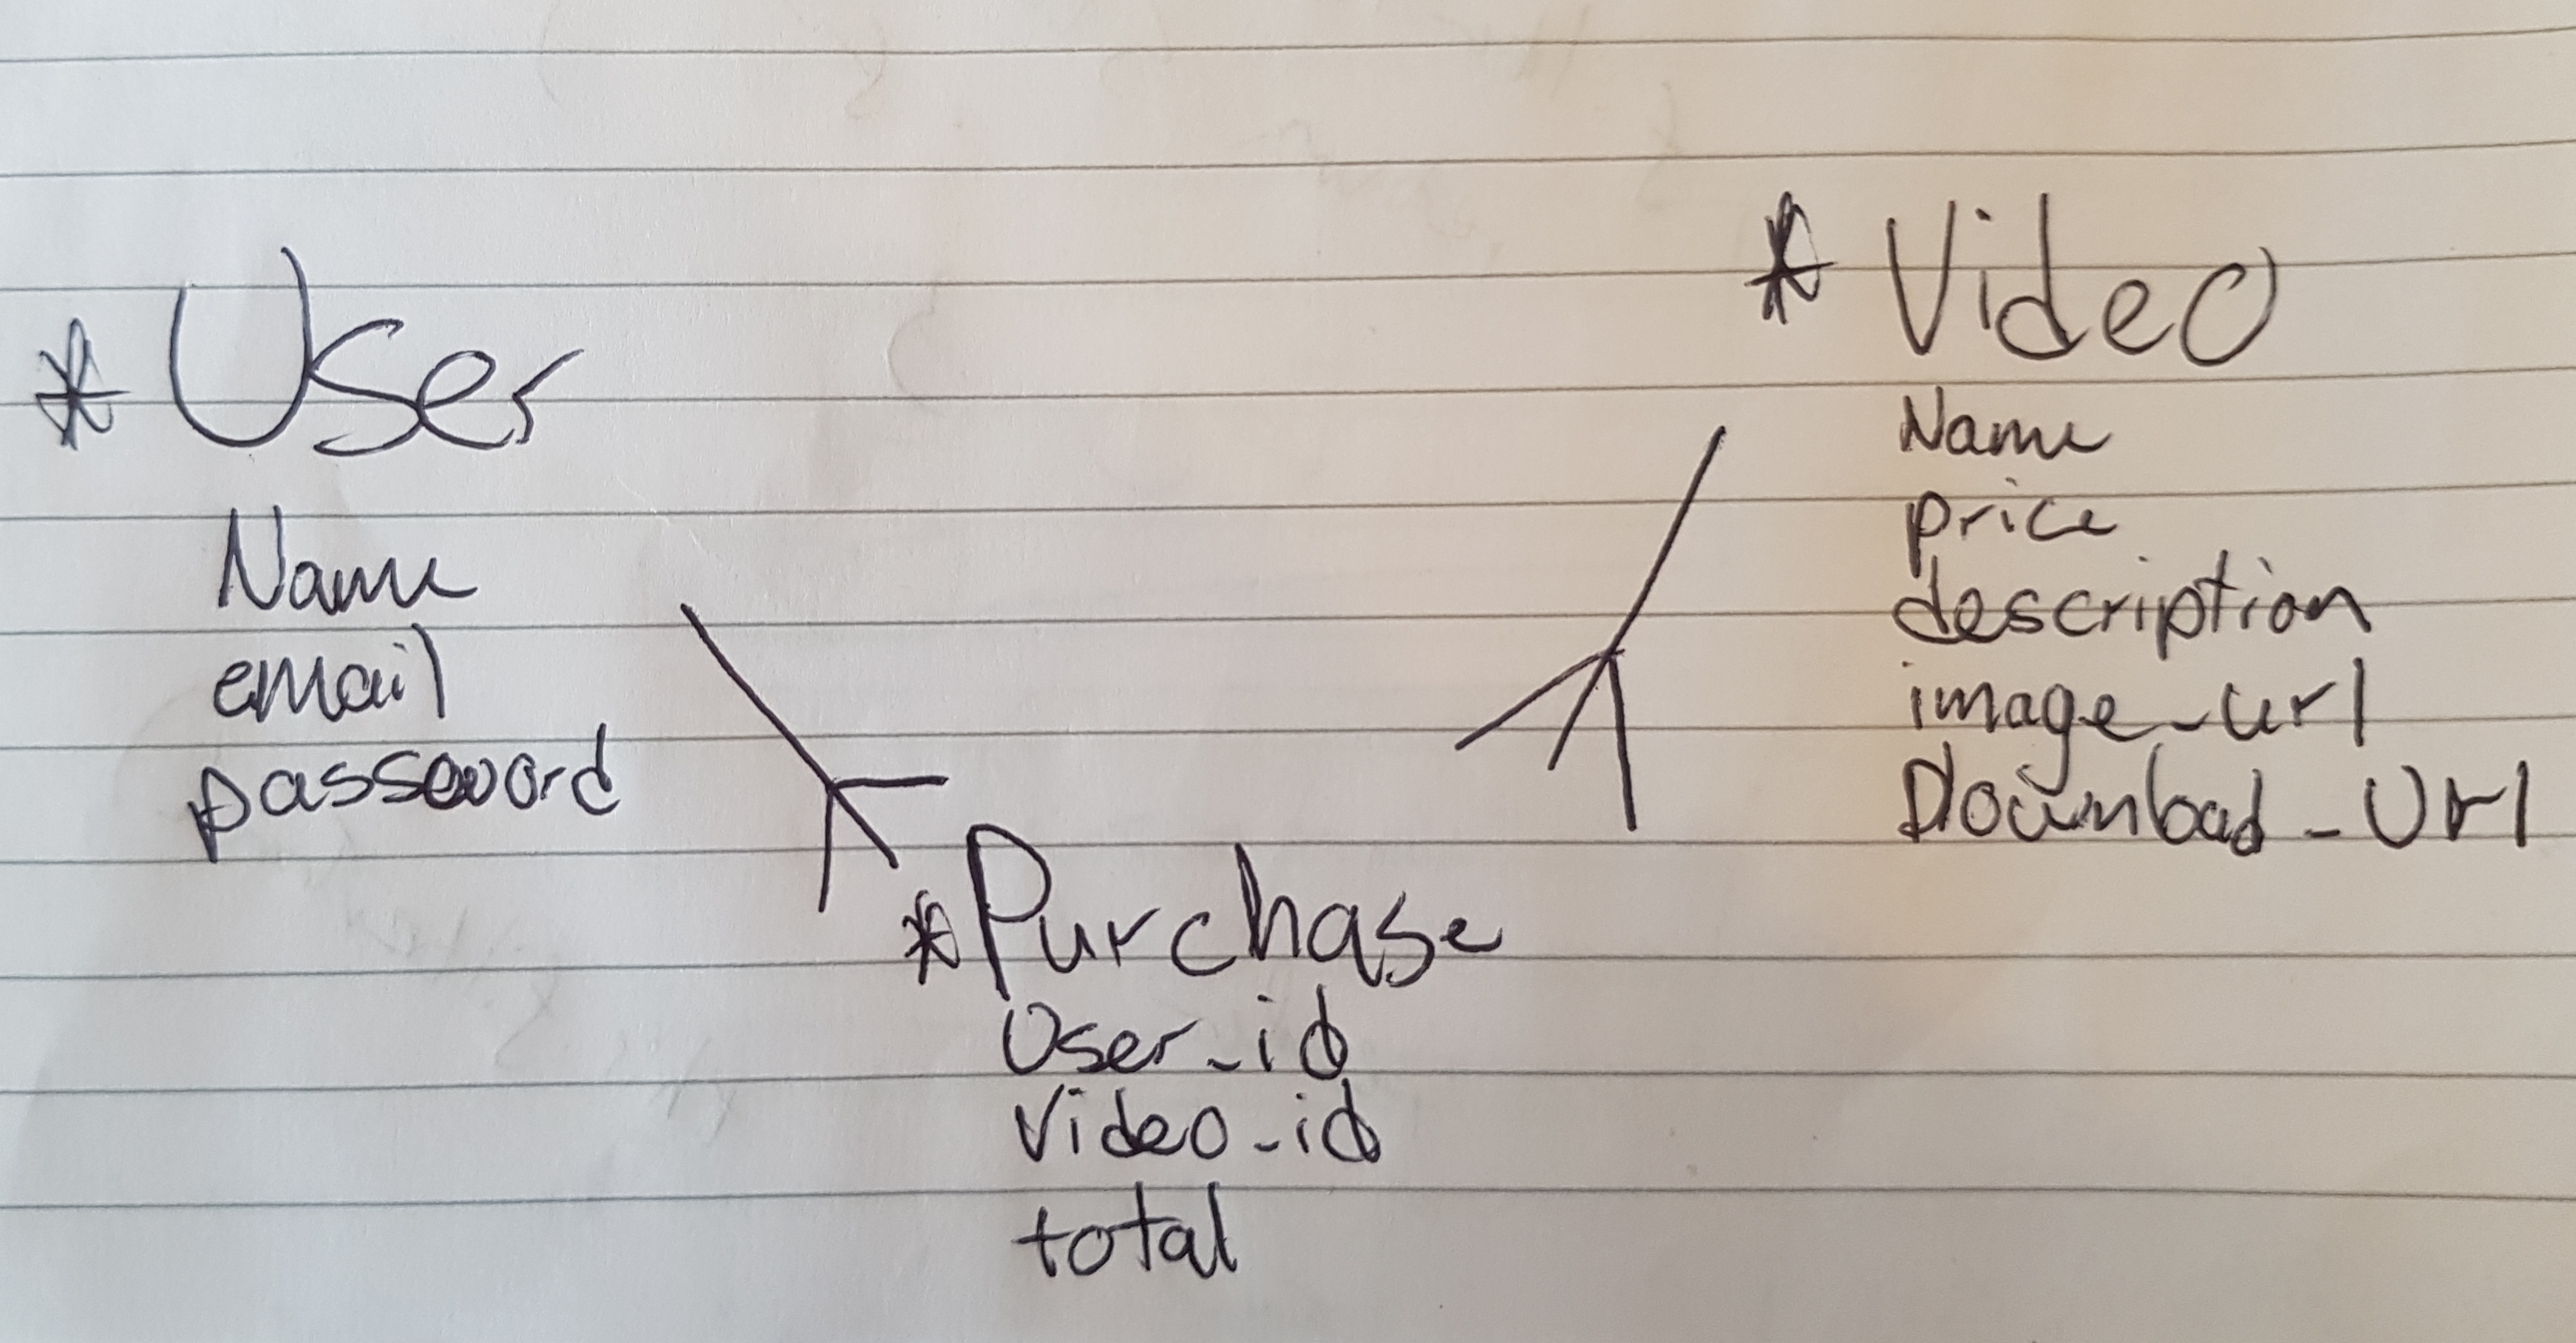 * User
Name
email
password
* Video
Name
price
description
image_url
Download_Url
* Purchase
User_id
Video_id
total